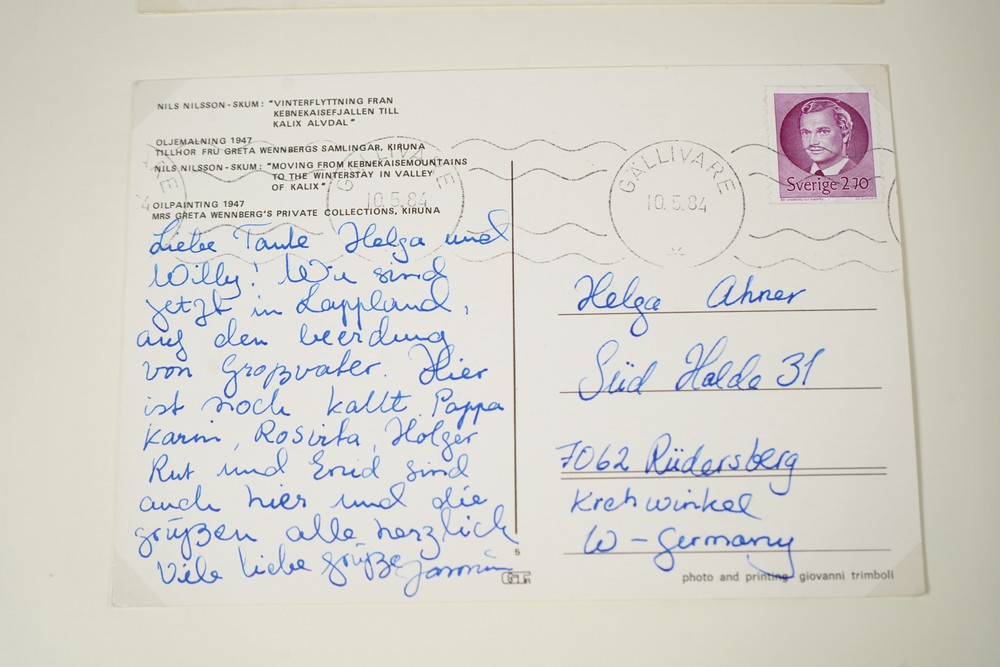 NILS NILSSON-SKUM: "VINTERFLYTTNING FRAN
KEBNEKAISEFJALLEN TILL
KALIX ALVDAL"
OLJEMALNING 1947
TILLHOR FRU GRETA WENNBERGS SAMLINGAR, KIRUNA
NILS NILSSON-SKUM: "MOVING FROM KEBNEKAISEMOUNTAINS
TO THE WINTERSTAY IN VALLEY
OF KALIX"
OILPAINTING 1947
MRS GRETA WENNBERG'S PRIVATE COLLECTIONS, KIRUNA
GÄLLIVARE
10.5.84
GÄLLIVARE
10.5.84
Sverige 2.70
Liebe Tante Helga und
Willy! Wir sind
jetzt in Lappland,
auf den beerdung
von Großvater. Hier
ist noch kallt. Pappa
Karin, Rosvita, Holger
Rut und Enid sind
auch hier und die
grüßen alle herzlich
Viele liebe grüße Jasmin
Helga Ahner
Süd Halde 31
7062 Rüdersberg
Krehwinkel
W-Germany
5
photo and printing giovanni trimboli